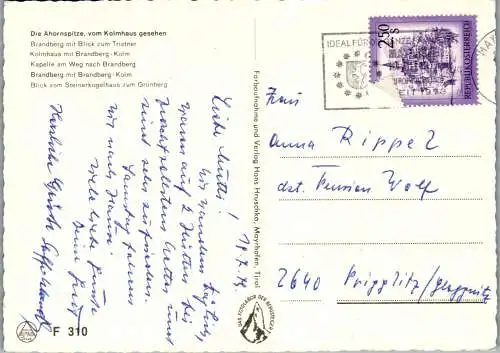 Die Ahornspitze, vom Kolmhaus gesehen
Brandberg mit Blick zum Tristner
Kolmhaus mit Brandberg - Kolm
Kapelle am Weg nach Brandberg
Brandberg mit Brandberg - Kolm
Blick vom Steinerkogelhaus zum Grünberg
19.7.79
Liebe Mutti!
Wir wandern täglich,
waren auf 2 Hütten bei
prachtvollstem Wetter und
sind sehr zufrieden.
Samstag fahren
wir nach Hause.
Viele liebe Grüße
Dein
Herzliche Grüße
F 310
Farbaufnahme und Verlag Hans Hruschka, Mayrhofen, Tirol
IDEAL FÜR
2.50
S
REPUBLIK ÖSTERREICH
Frau
Anna Rippel
dzt. Pension Wolf
2640 Prigglitz/Gloggnitz